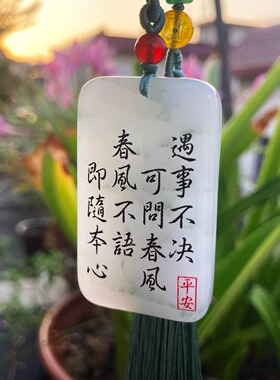 遇事不决
可問春風
春風不語
即隨本心
平安